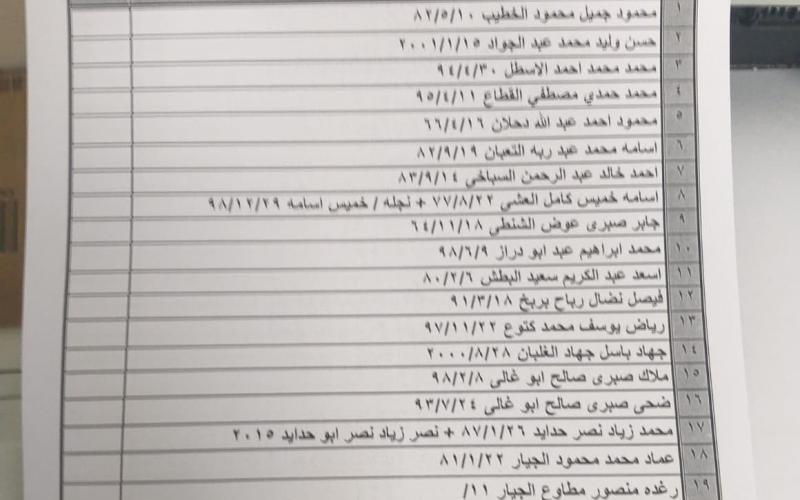 ١ محمود جميل محمود الخطيب ٨٢/٥/١٠
٢ حسن وليد محمد عبد الجواد ٢٠٠١/١/١٥
٣ محمد محمد احمد الاسطل ٩٤/٤/٣٠
٤ محمد حمدي مصطفي القطاع ٩٥/٤/١١
٥ محمود احمد عبد الله دحلان ٦٦/٤/١٦
٦ اسامه محمد عبد ربه التعبان ٨٢/٩/١٩
٧ احمد خالد عبد الرحمن السباخى ٨٣/٩/١٤
٨ اسامه خميس كامل العشى ٧٧/٨/٢٢ + نجله / خميس اسامه ٩٨/١٢/٢٩
٩ جابر صبرى عوض الشنطي ٦٤/١١/١٨
١٠ محمد ابراهيم عبد ابو دراز ٩٨/٦/٩
١١ اسعد عبد الكريم سعيد البطش ٨٠/٢/٦
١٢ فيصل نضال رباح بربخ ٩١/٣/١٨
١٣ رياض يوسف محمد كتوع ٩٧/١١/٢٢
١٤ جهاد باسل جهاد الغلبان ٢٠٠٠/٨/٢٨
١٥ ملاك صبرى صالح ابو غالى ٩٨/٢/٨
١٦ ضحى صبرى صالح ابو غالى ٩٣/٧/٢٤
١٧ محمد زياد نصر حدايد ٨٧/١/٢٦ + نصر زياد نصر ابو حدايد ٢٠١٥
١٨ عماد محمد محمود الجيار ٨١/١/٢٢
١٩ رغده منصور مطاوع الجيار ١١/